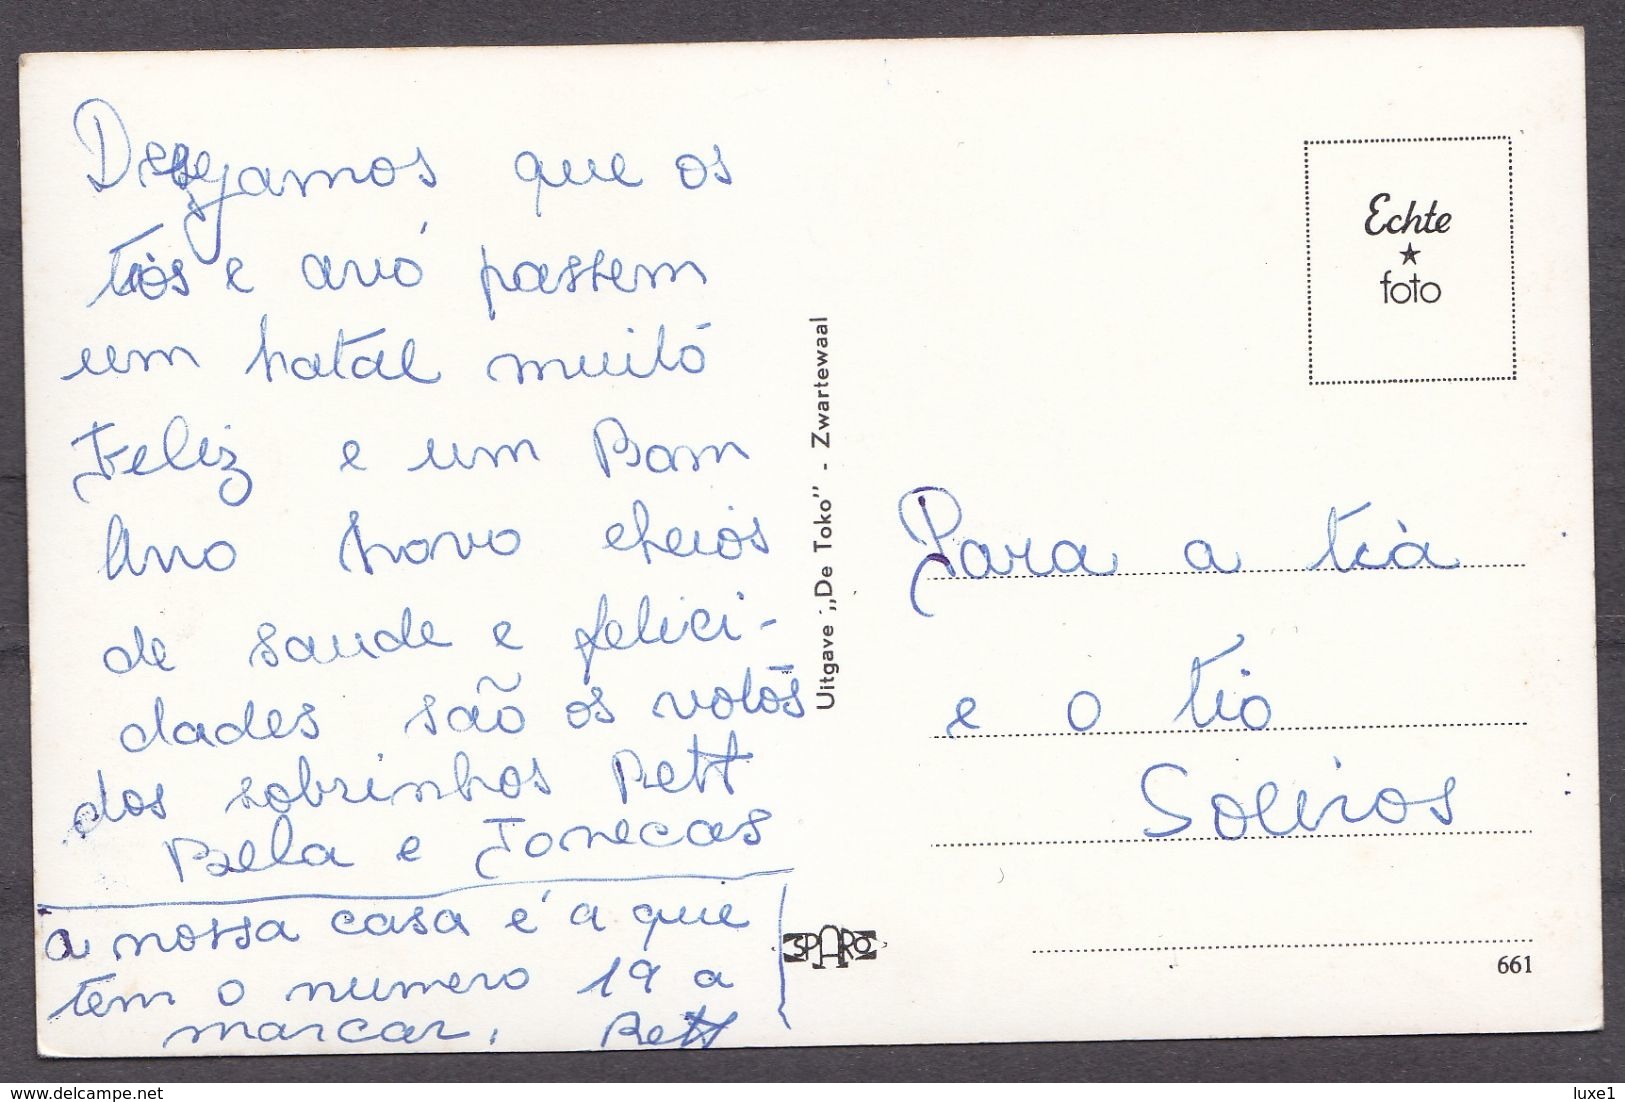 Desejamos que os
tios e avó passem
um natal muito
Feliz e um Bom
Ano novo cheios
de saude e felici-
dades são os votos
dos sobrinhos Bett
Bela e Fonecas
a nossa casa é a que
tem o numero 19 a
marcar. Bett
Uitgave „De Toko” - Zwartewaal
SPARO
Echte
foto
Para a tia
e o tio
661
luxe1